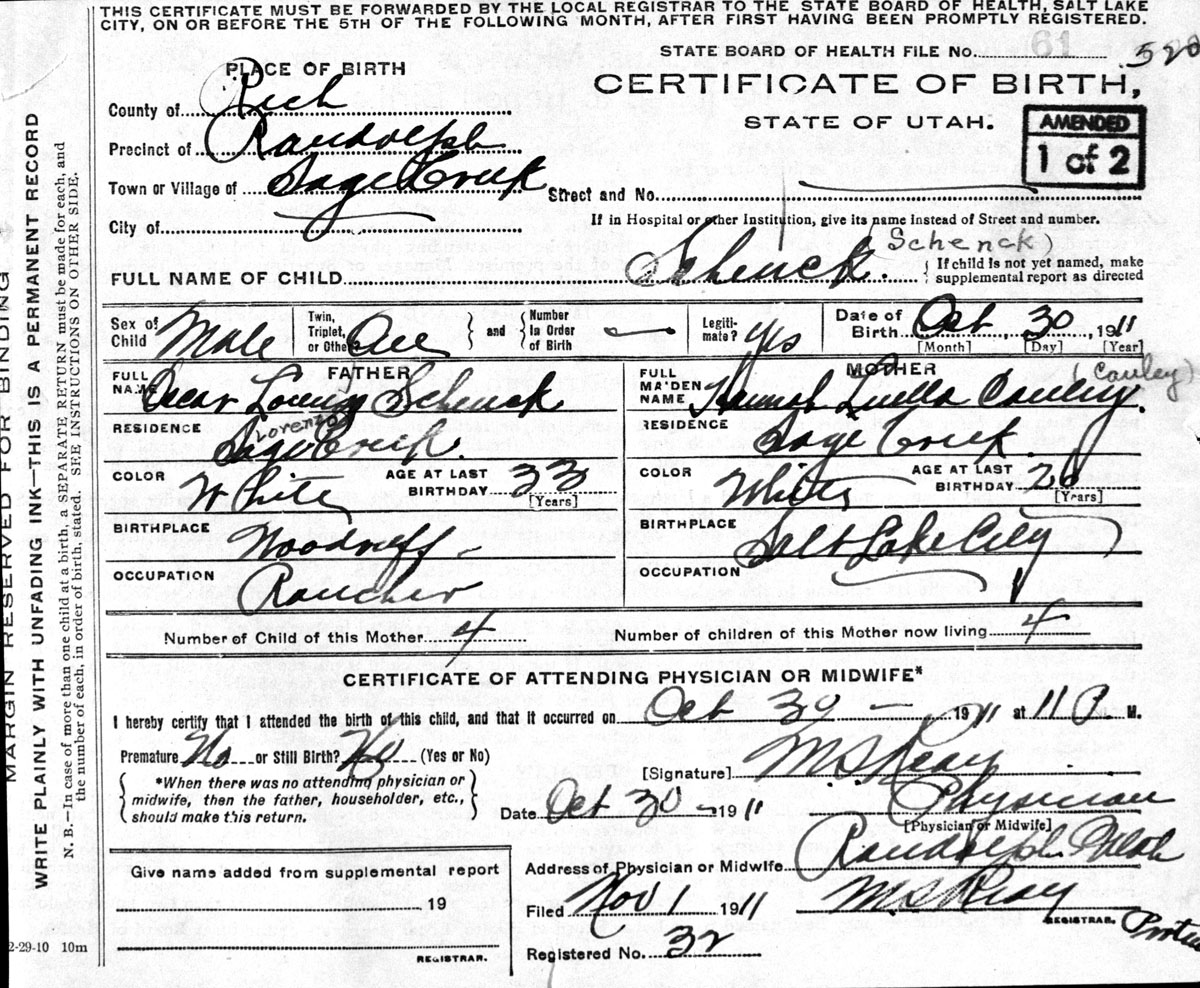 THIS CERTIFICATE MUST BE FORWARDED BY THE LOCAL REGISTRAR TO THE STATE BOARD OF HEALTH, SALT LAKE
CITY, ON OR BEFORE THE 5TH OF THE FOLLOWING MONTH, AFTER FIRST HAVING BEEN PROMPTLY REGISTERED.
MARGIN RESERVED FOR BINDING
WRITE PLAINLY WITH UNFADING INK—THIS IS A PERMANENT RECORD
N. B.—In case of more than one child at a birth, a SEPARATE RETURN must be made for each, and
the number of each, in order of birth, stated. SEE INSTRUCTIONS ON OTHER SIDE.
STATE BOARD OF HEALTH FILE No. 61
PLACE OF BIRTH
CERTIFICATE OF BIRTH,
STATE OF UTAH.
AMENDED
1 of 2
County of Rich
Precinct of Randolph
Town or Village of Sage Creek Street and No.
City of
If in Hospital or other Institution, give its name instead of Street and number.
FULL NAME OF CHILD Schenck. (Schenck)
{ If child is not yet named, make
supplemental report as directed
Sex of Child Male
Twin, Triplet, or Other?
} and { Number In Order of Birth
Legiti-mate? Yes
Date of Birth Oct, 30, 1911
[Month] [Day] [Year]
FATHER
FULL NAME Oscar Schenck
Lorenzo
RESIDENCE Sage Creek.
COLOR White AGE AT LAST BIRTHDAY 33
[Years]
BIRTHPLACE Woodruff
OCCUPATION Rancher
MOTHER
FULL MAIDEN NAME Hannah Luella Cauley. (Cauley)
RESIDENCE Sage Creek.
COLOR White AGE AT LAST BIRTHDAY 26
[Years]
BIRTHPLACE Salt Lake City
OCCUPATION
Number of Child of this Mother 4 Number of children of this Mother now living 4
CERTIFICATE OF ATTENDING PHYSICIAN OR MIDWIFE*
I hereby certify that I attended the birth of this child, and that it occurred on Oct 30 — 1911 at 11 P. M.
Premature No or Still Birth? No (Yes or No)
{ *When there was no attending physician or
midwife, then the father, householder, etc.,
should make this return. }
[Signature] M S Reay
Date Oct 30 - 1911 Physician
[Physician or Midwife]
Address of Physician or Midwife Randolph Utah
Filed Nov 1 1911 M S Reay
REGISTRAR.
Registered No. 32
Give name added from supplemental report
19
REGISTRAR.
2-29-10 10m